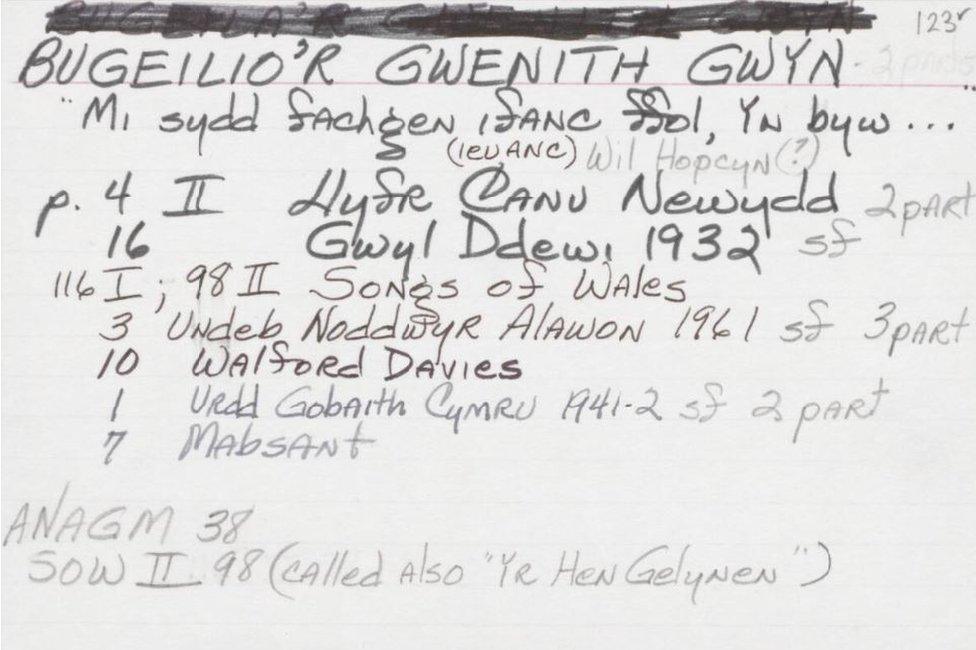 123r
BUGEILIO'R GWENITH GWYN - 2 parts
"Mi sydd fachgen ifanc ffol, Yn byw ..."
(ieuanc) Wil Hopcyn (?)
p. 4 II Llyfr Canu Newydd 2 part
16 Gwyl Ddewi 1932 sf
116 I; 98 II Songs of Wales
3 Undeb Noddwyr Alawon 1961 sf 3 part
10 Walford Davies
1 Urdd Gobaith Cymru 1941-2 sf 2 part
7 Mabsant
ANAGM 38
SOW II 98 (called also "Yr Hen Gelynen")